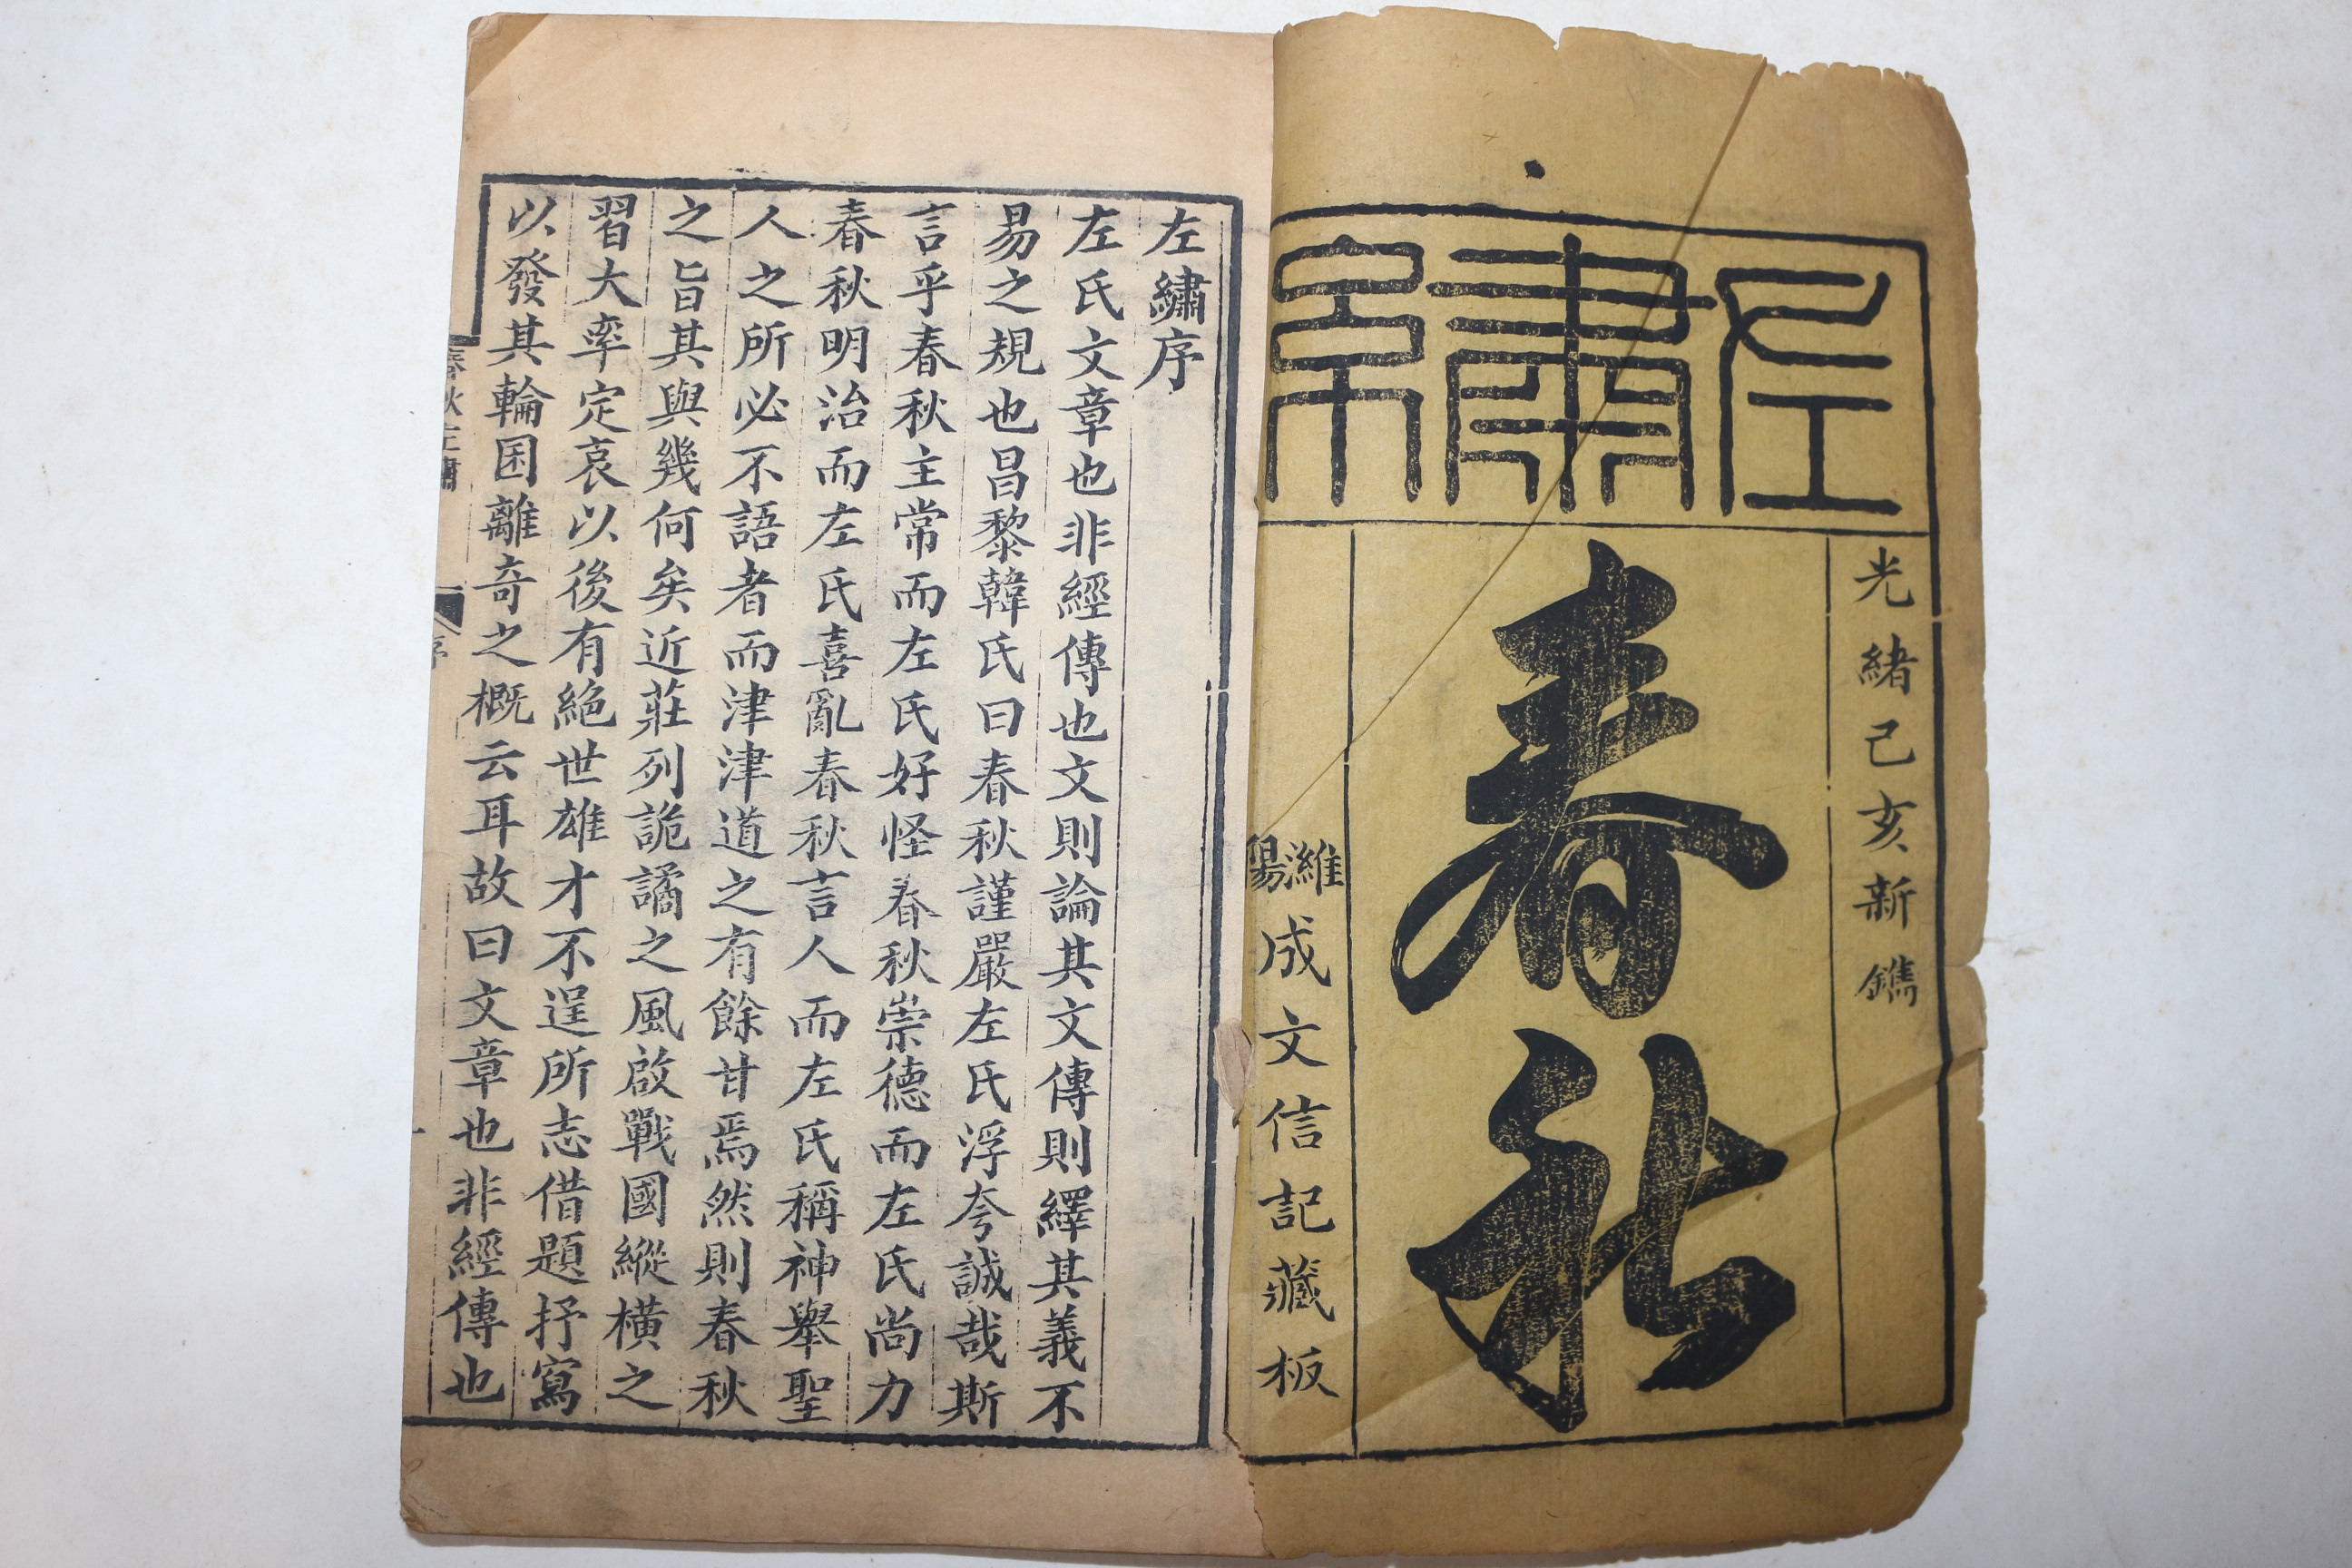 左繡
光緒己亥新鐫
春秋
濰陽成文信記藏板
左繡序
左氏文章也非經傳也文則論其文傳則繹其義不
易之規也昌黎韓氏曰春秋謹嚴左氏浮夸誠哉斯
言乎春秋主常而左氏好怪春秋崇德而左氏尚力
春秋明治而左氏喜亂春秋言人而左氏稱神舉聖
人之所必不語者而津津道之有餘甘焉然則春秋
之旨其與幾何矣近莊列詭譎之風啟戰國縱橫之
習大率定哀以後有絕世雄才不逞所志借題抒寫
以發其輪囷離奇之概云耳故曰文章也非經傳也
春秋左繡
序